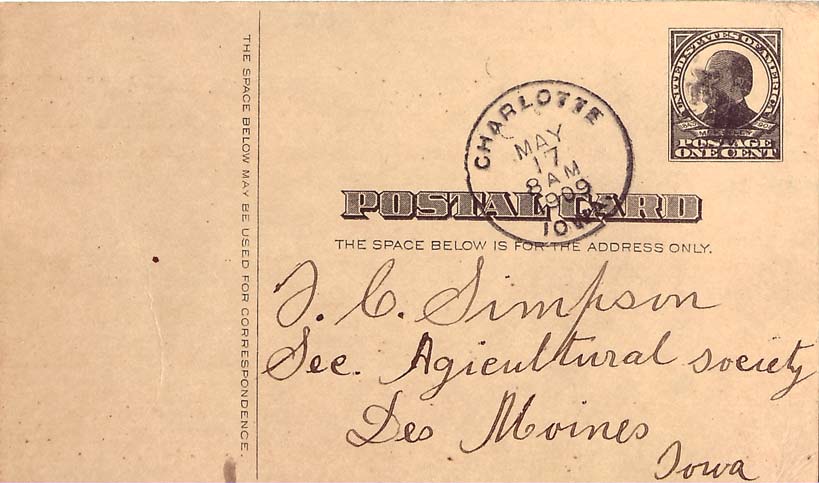 THE SPACE BELOW MAY BE USED FOR CORRESPONDENCE.
UNITED STATES OF AMERICA
POSTAGE
ONE CENT
CHARLOTTE
MAY
17
8 AM
1909
IOWA
POSTAL CARD
THE SPACE BELOW IS FOR THE ADDRESS ONLY.
J. C. Simpson
Sec. Agicultural society
Des Moines
Iowa